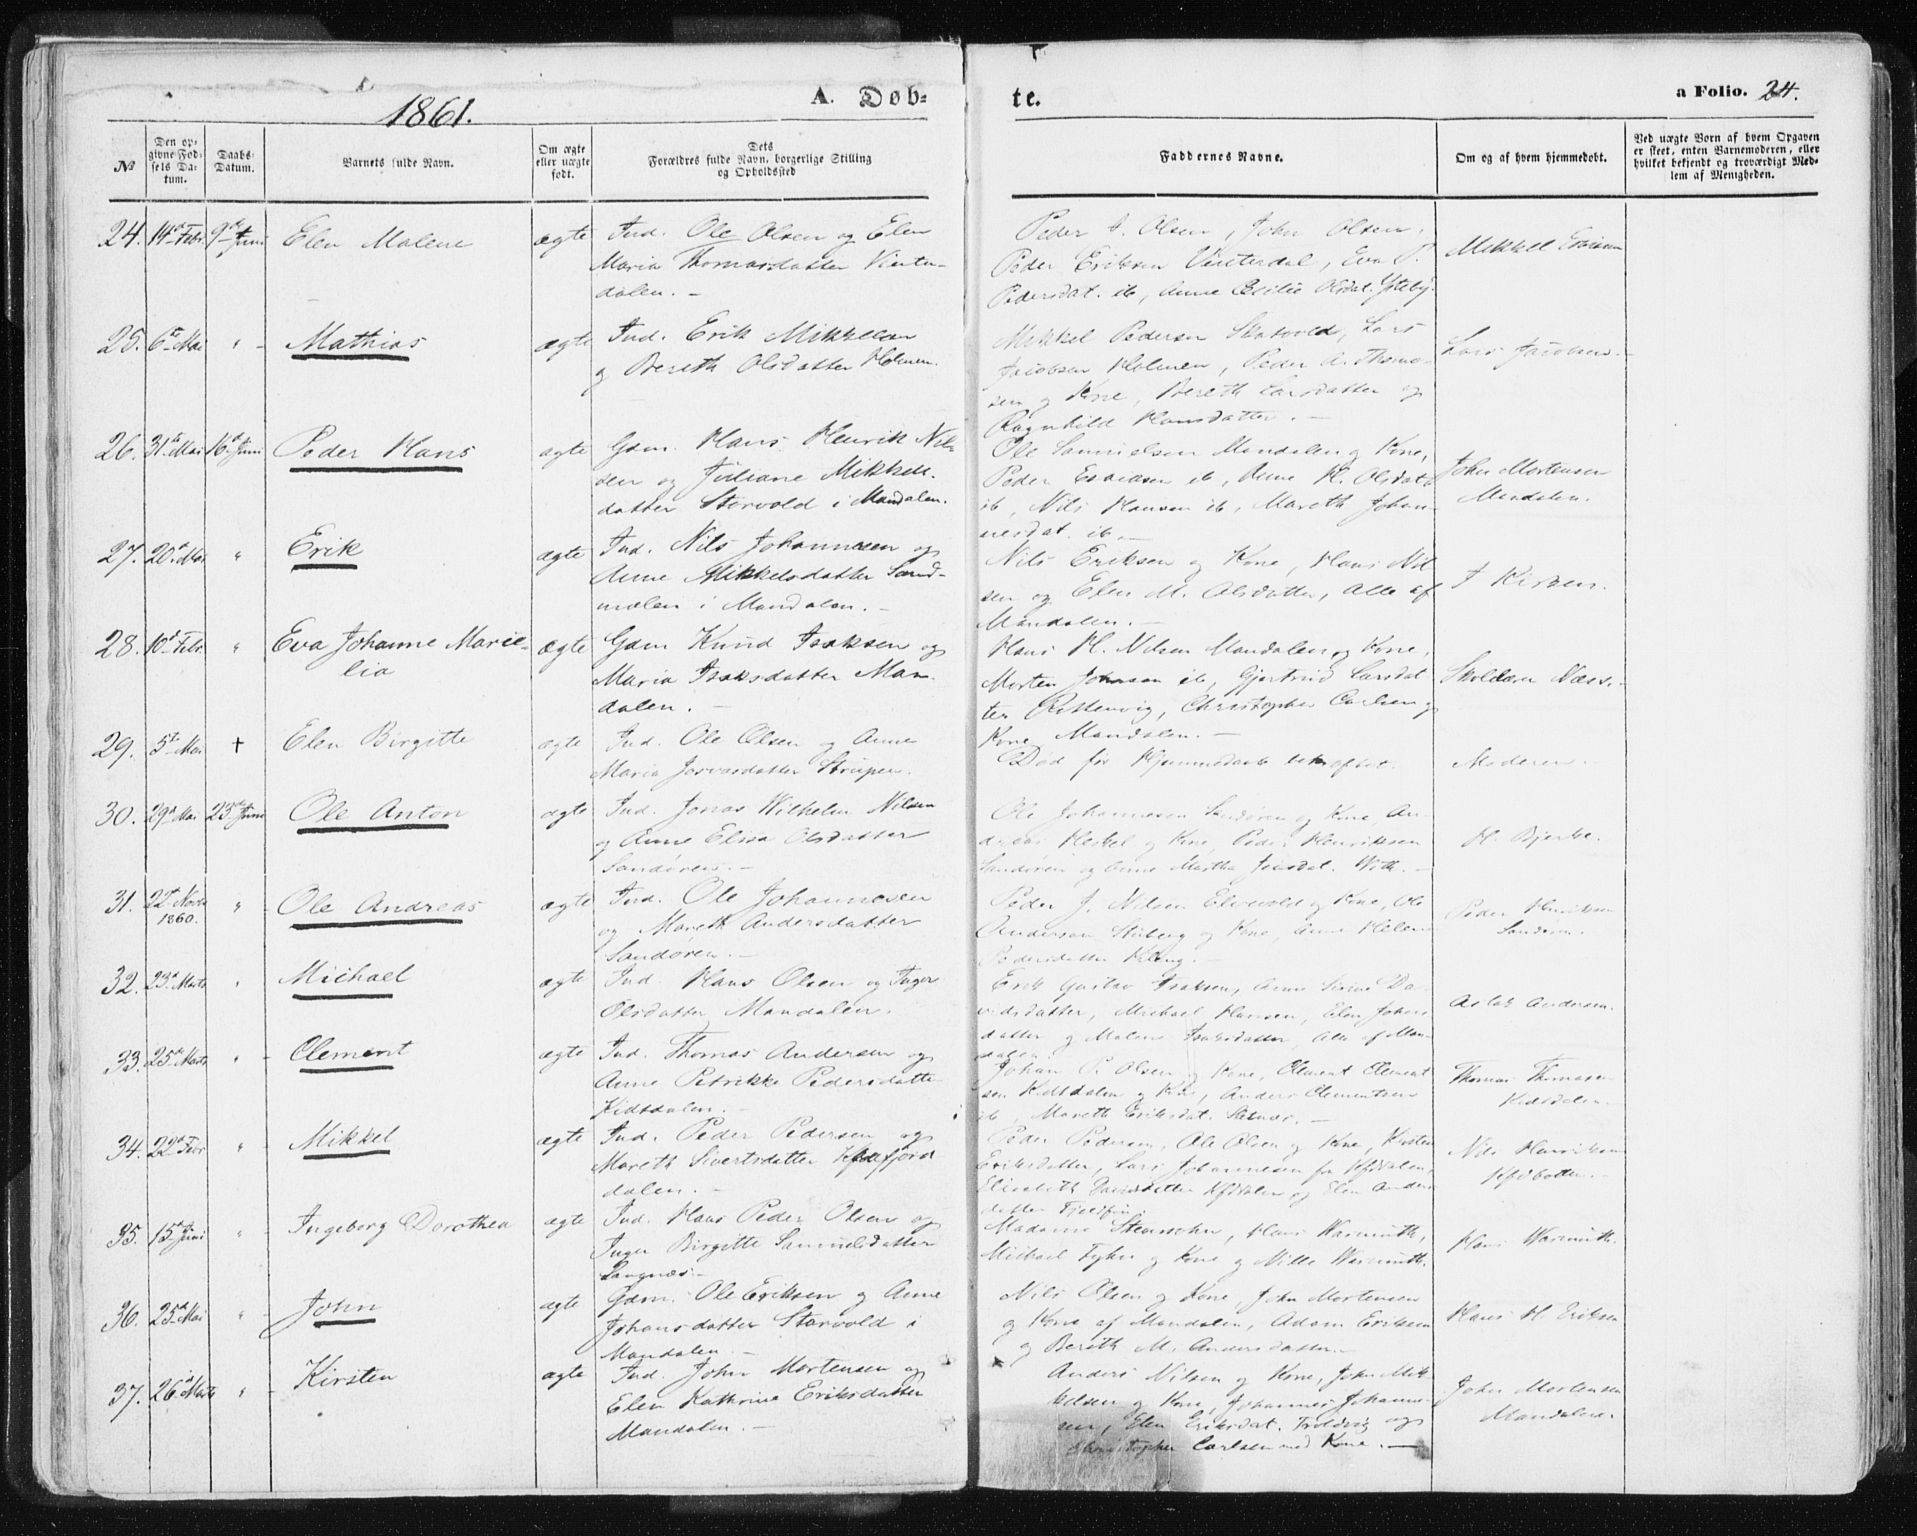 1861.
A. Døb-
te.
a Folio. 24.
No
Den op-
givne Fød-
sels Da-
tum.
Daabs-
Datum.
Barnets fulde Navn.
Om ægte
eller uægte
født.
Dets
Forældres fulde Navn, borgerlige Stilling
og Opholdssted
Faddernes Navne.
Om og af hvem hjemmedøbt.
Ved uægte Børn af hvem Opgaven
er skeet, enten Barnemoderen, eller
hvilket bekjendt og troværdigt Med-
lem af Menigheden.
24. 14de Febr. 9de Juni Elen Malene ægte Ind. Ole Olsen og Elen
Maria Thomasdatter
dalen. —
Peder Olsen, John Olsen,
Peder Eriksen, Eva P.
Pedersdat. ib, Anne Olsdat.
Mikkel
25. 6te Mai " Mathias ægte Ind. Erik Mikkelsen
og Bereth Olsdatter Holmen.
Mikkel Pedersen Skatvold, Lars
Jacobsen Holmen, Peder A. Thoma-
sen og Kone, Bereth Larsdatter og
Ragnhild Hansdatter. —
Lars Jacobsen. —
26. 31te Mai 16de Juni Peder Hans ægte Gdm. Hans Henrik Nil-
sen og Juliane Mikkels-
datter Storvold i Mandalen.
Ole Samuelsen Mandalen og Kone,
Peder Esaiasen ib, Anne K. Olsdat.
ib, Nils Hansen ib, Mareth Johan-
nesdat. ib. —
John Mortensen
Mandalen.
27. 20de Mai " Erik ægte Ind. Nils Johannesen og
Anne Mikkelsdatter Sand-
mælen i Mandalen. —
Nils Eriksen og Kone, Hans Nil
sen og Elen M. Olsdatter, Alle af
Mandalen. —
28. 10de Febr. " Eva Johanne Marie-
lia ægte Gdm Knud Isaksen og
Maria Isaksdatter Man-
dalen. —
Hans H. Nilsen Mandalen og Kone,
Morten Johnsen ib, Gjertrud Larsdat
ter, Christopher Carlsen og
Kone, Mandalen. —
29. 5te Mai † Elen Birgitte ægte Ind. Ole Olsen og Anne
Maria datter Strupen.
Død før Hjemmedaab bekræftet.
Moderen. —
30. 29de Mai 23de Juni Ole Anton ægte Ind. Jonas Wilhelm Nilsen
og Anne Elisa Olsdatter
Sandøren. —
Ole Johannesen Sandøren og Kone, An-
dreas og Kone, Peder Henriksen
Sandøren og Anne Martha
H. Bjerke.
31. 22de Novbr
1860. " Ole Andreas ægte Ind. Ole Johannesen
og Mareth Andersdatter
Sandøren. —
Peder J. Nilsen Elvevold og Kone, Ole
Andersen og Kone, Anne Helene
Pedersdatter
Peder Henriksen
Sandøren.
32. 23de Marts " Michael ægte Ind. Hans Olsen og Inger
Olsdatter Mandalen.
Erik Gustav Isaksen, Anne Da-
vidsdatter, Michael Hansen, Elen Johns
datter og Malene Isaksdatter, Alle af Man-
dalen.
Aslak Andersen.
33. 25de Marts " Clement ægte Ind. Thomas Andersen og
Anne Petrikke Pedersdatter
Kidsdalen. —
Johan P. Olsen og Kone, Clement Clement
sen Kidsdalen og Kone, Anders Clementsen
ib, Mareth Eriksdat.
Thomas Thomasen
Kidsdalen.
34. 22de Febr " Mikkel ægte Ind. Peder Pedersen og
Mareth Sivertsdatter Kaafjord
dalen. —
Peder Pedersen, Ole Olsen og Kone, Kirsten
Eriksdatter, Lars Johannesen fra Kfjddalen,
Elisabeth og Elen Anders
datter
Nils Henriksen
Kfjdbotten. —
35. 15de Juni " Ingeborg Dorothea ægte Ind. Hans Peder Olsen og
Inger Birgitte Samuelsdatter
Langnæs. —
Madame Steensohn, Hans Warmuth,
Michael og Kone og Nille Warmuth.
Hans Warmuth.
36. 25de Mai " John ægte Gdm. Ole Eriksen og Anne
Johansdatter Storvold i
Mandalen. —
Nils Olsen og Kone, John Mortensen
og Kone af Mandalen, Adam Eriksen
og Bereth M. Andersdatter. —
Hans H. Eriksen
37. 26de Marts " Kirsten ægte Ind. John Mortensen og
Elen Kathrine Eriksdatter
Mandalen. —
Anders Nilsen og Kone, John Mik-
kelsen og Kone, Johannes Johanne-
sen, Elen Eriksdat. Troldvig og
Christopher Carlsen med Kone. —
John Mortensen
Mandalen.